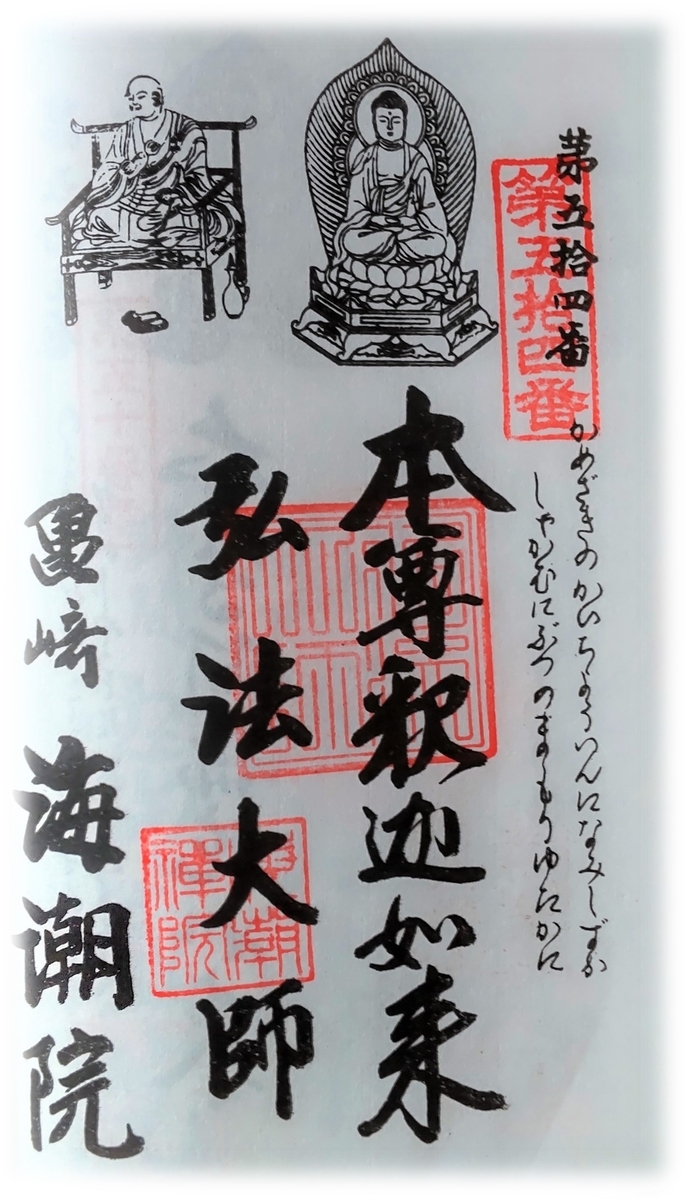 第五拾四番
第五拾四番
かめざきのかいちょういんになみしずか
しゃかむにぶつのまもりゆたかに
本尊釈迦如来
弘法大師
海潮
禅院
亀崎 海潮院